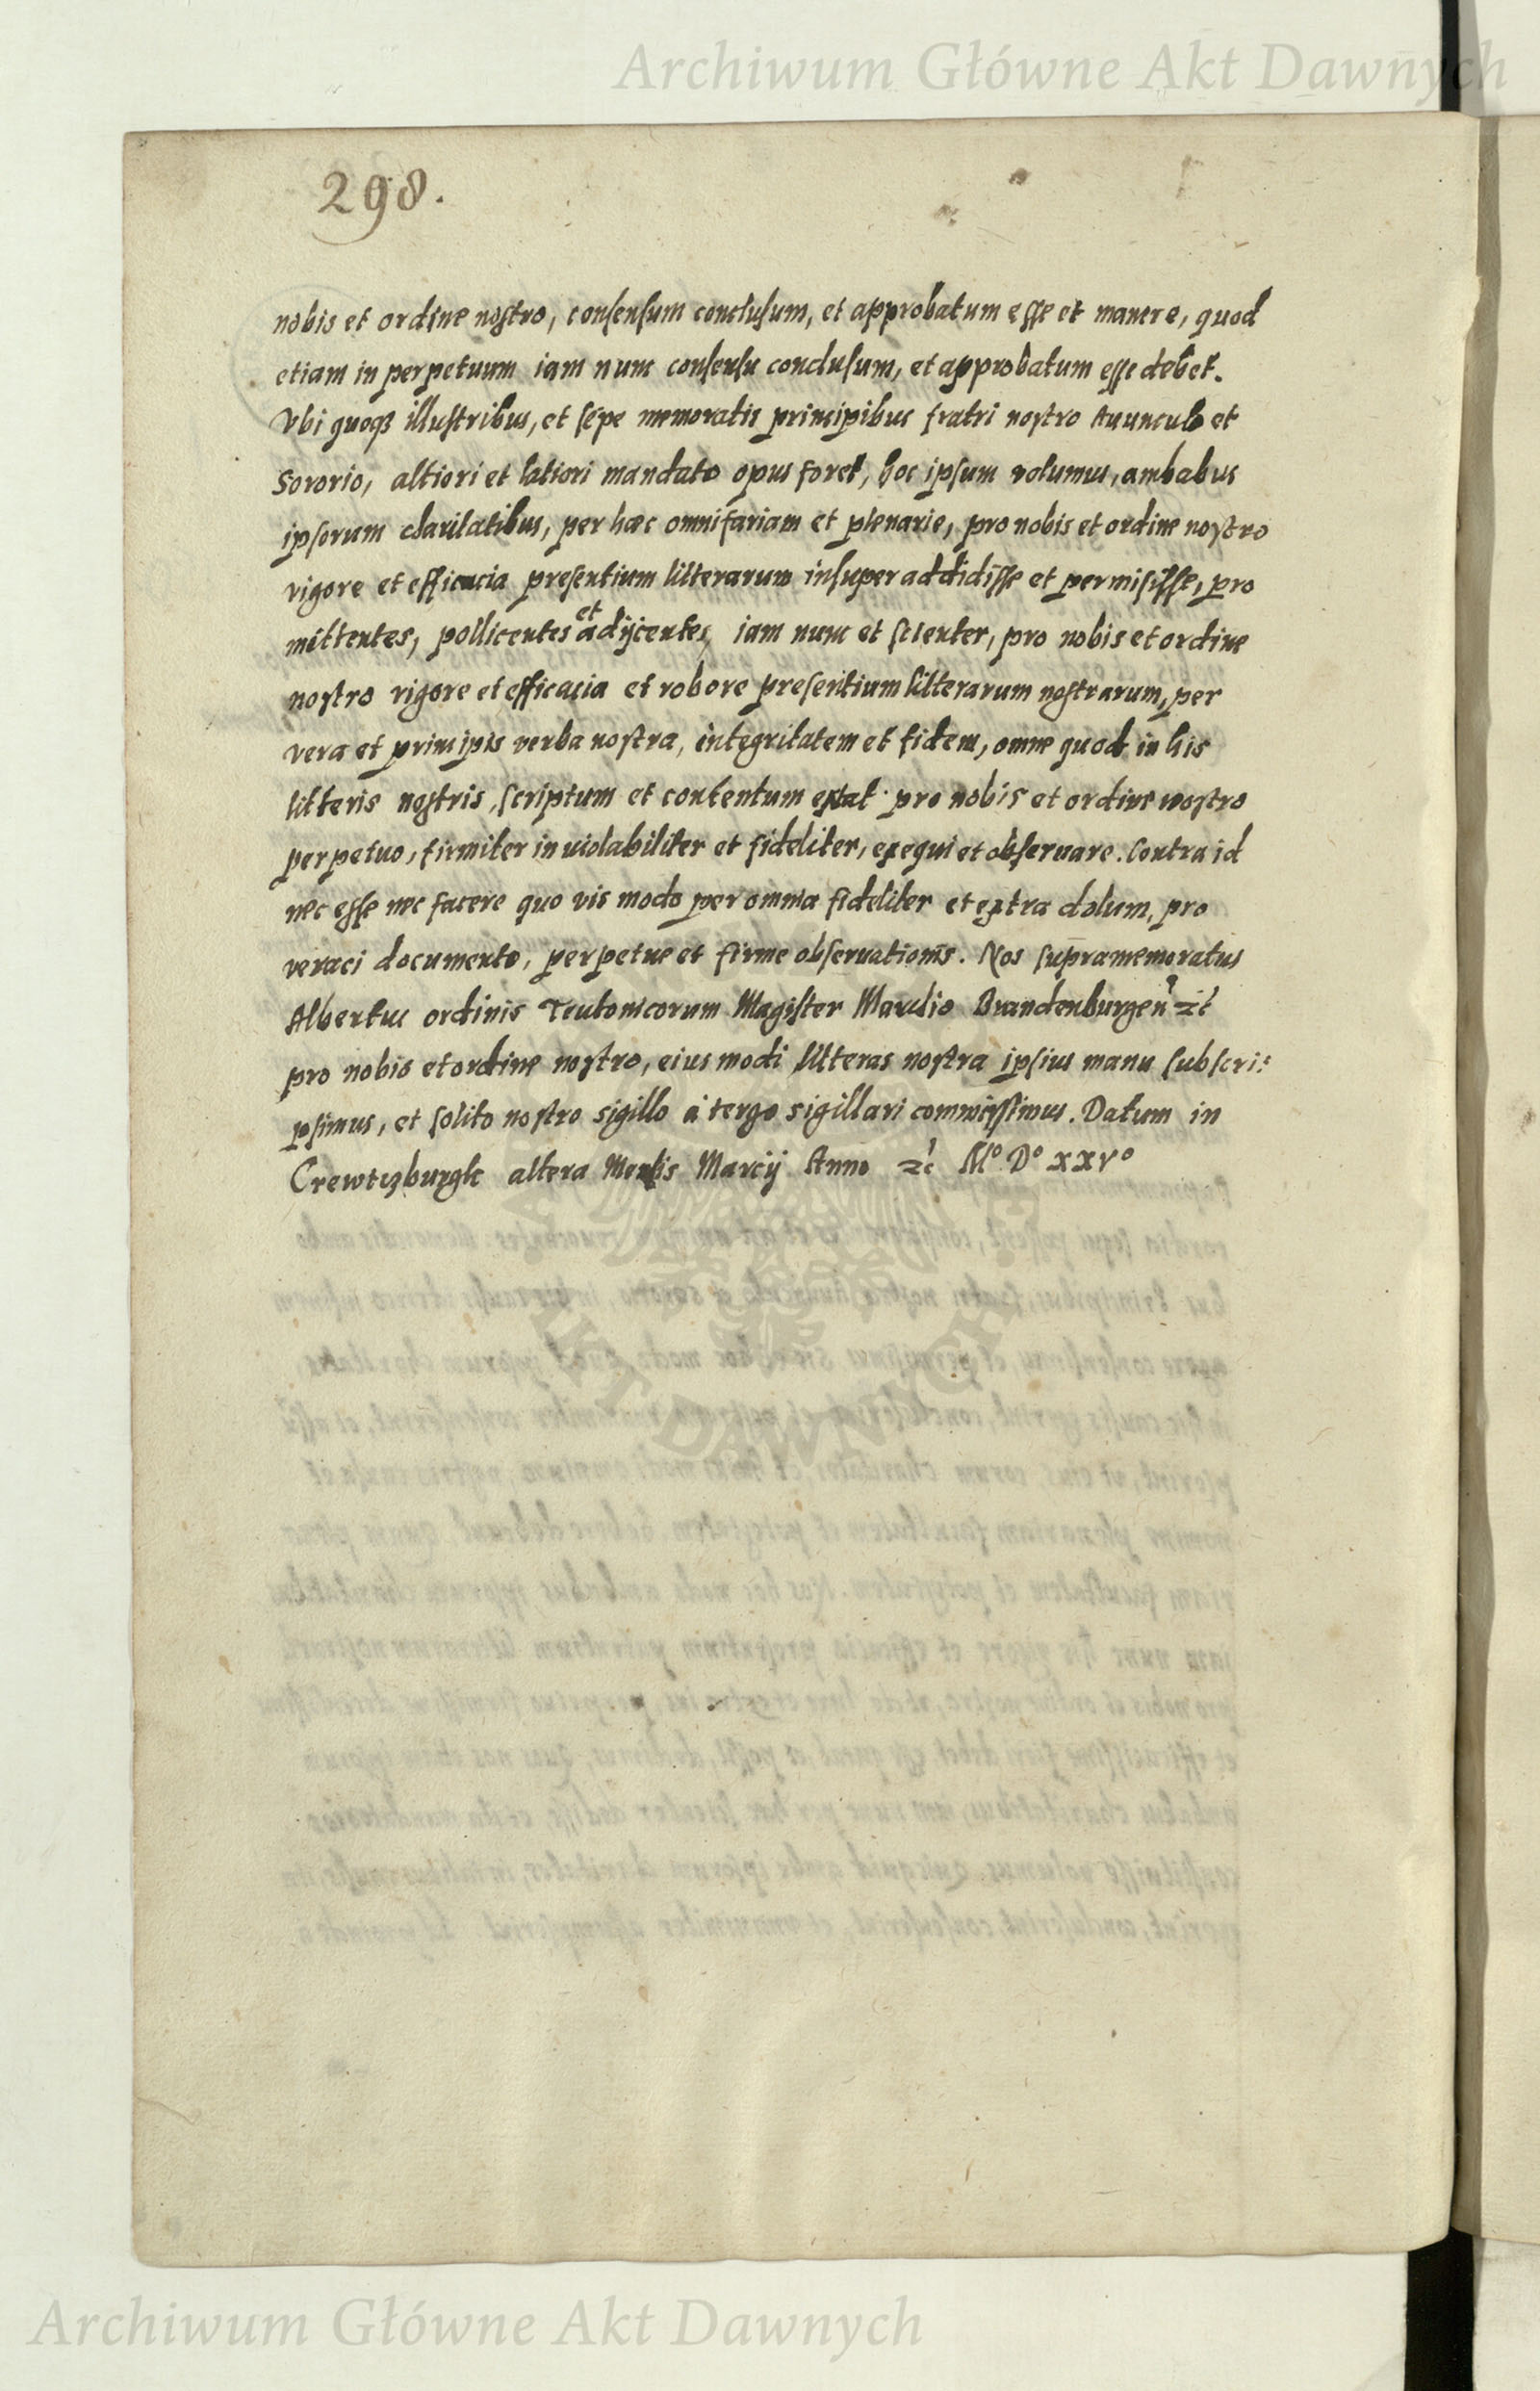 Archiwum Główne Akt Dawnych
298.
nobis et ordine nostro, consensum conclusum, et approbatum esse et manere, quod
etiam in perpetuum iam nunc consensu conclusum, et approbatum esse debet.
Vbi quoqz illustribus, et sępe memoratis principibus fratri nostro Auunculo et
Sororio, altiori et latiori mandato opus foret, hoc ipsum volumus, ambabus
ipsorum claritatibus, per hæc omnifariam et plenarie, pro nobis et ordine nostro
vigore et efficacia presentium litterarum insuper addidisse et permisisse, pro
mittentes, pollicentes et adijcientes, iam nunc et scienter, pro nobis et ordine
nostro vigore et efficacia et robore presentium litterarum nostrarum, per
vera et principis verba nostra, integritatem et fidem, omne quod in his
litteris nostris, scriptum et contentum extat pro nobis et ordine nostro
perpetuo, firmiter inuiolabiliter et fideliter, exequi et obseruare. Contra id
nec esse nec facere quo vis modo per omnia fideliter et extra dolum, pro
veraci documento, perpetue et firme obseruationis. Nos supramemoratus
Albertus ordinis Teutonicorum Magister Marchio Brandenburgen̄ zc̄
pro nobis et ordine nostro, eius modi litteras nostra ipsius manu subscri:
psimus, et solito nostro sigillo à tergo sigillari commisimus. Datum in
Crewtzburgk altera Mensis Marcij Anno zc̄ M° D° xxv°
AKT DAWNYCH
Archiwum Główne Akt Dawnych